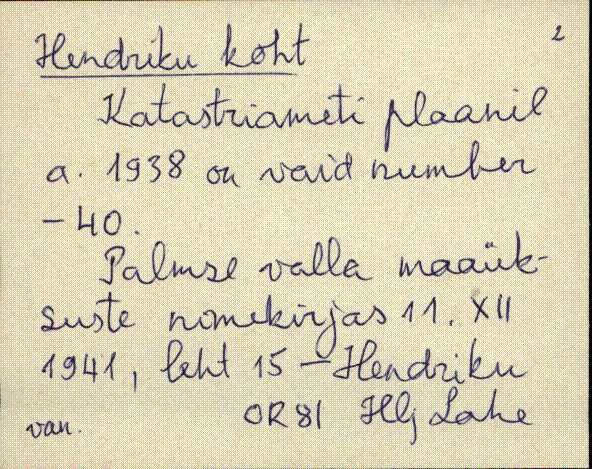 2
Hendriku koht
Katastriameti plaanil
a. 1938 on vaid number
- 40.
Palmse valla maaük-
suste nimekirjas 11. XII
1941, leht 15 - Hendriku
van. OR 81 Hlj Lahe